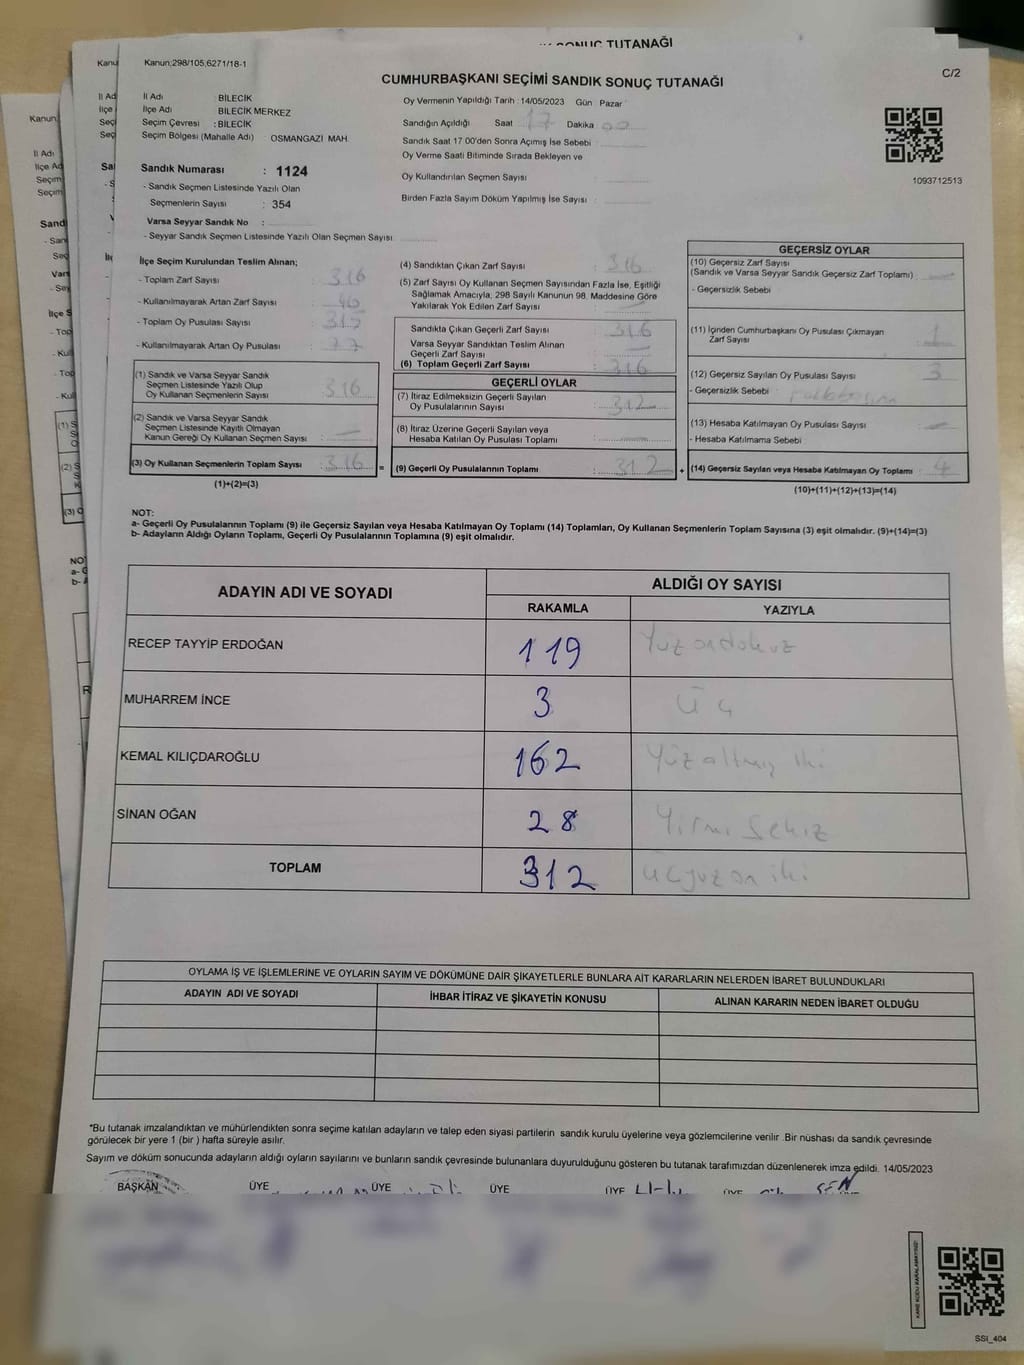 SONUÇ TUTANAĞI
Kanun;298/105,6271/18-1
C/2
CUMHURBAŞKANI SEÇİMİ SANDIK SONUÇ TUTANAĞI
İl Adı BİLECİK
İlçe Adı BİLECİK MERKEZ
Seçim Çevresi : BİLECİK
Seçim Bölgesi (Mahalle Adı) OSMANGAZİ MAH.
Oy Vermenin Yapıldığı Tarih : 14/05/2023 Gün Pazar
Sandığın Açıldığı Saat 17 Dakika 00
Sandık Saat 17.00'den Sonra Açılmış İse Sebebi :
Oy Verme Saati Bitiminde Sırada Bekleyen ve
Oy Kullandırılan Seçmen Sayısı :
Birden Fazla Sayım Döküm Yapılmış İse Sayısı :
1093712513
Sandık Numarası : 1124
- Sandık Seçmen Listesinde Yazılı Olan
Seçmenlerin Sayısı : 354
Varsa Seyyar Sandık No :
- Seyyar Sandık Seçmen Listesinde Yazılı Olan Seçmen Sayısı
İlçe Seçim Kurulundan Teslim Alınan;
- Toplam Zarf Sayısı : 316
- Kullanılmayarak Artan Zarf Sayısı :
- Toplam Oy Pusulası Sayısı :
- Kullanılmayarak Artan Oy Pusulası :
(1) Sandık ve Varsa Seyyar Sandık
Seçmen Listesinde Yazılı Olup
Oy Kullanan Seçmenlerin Sayısı : 316
(2) Sandık ve Varsa Seyyar Sandık
Seçmen Listesinde Kayıtlı Olmayan
Kanun Gereği Oy Kullanan Seçmen Sayısı : —
(3) Oy Kullanan Seçmenlerin Toplam Sayısı : 316 =
(1)+(2)=(3)
(4) Sandıktan Çıkan Zarf Sayısı : 316
(5) Zarf Sayısı Oy Kullanan Seçmen Sayısından Fazla İse, Eşitliği
Sağlamak Amacıyla, 298 Sayılı Kanunun 98. Maddesine Göre
Yakılarak Yok Edilen Zarf Sayısı :
Sandıkta Çıkan Geçerli Zarf Sayısı : 316
Varsa Seyyar Sandıktan Teslim Alınan
Geçerli Zarf Sayısı : —
(6) Toplam Geçerli Zarf Sayısı : 316
GEÇERLİ OYLAR
(7) İtiraz Edilmeksizin Geçerli Sayılan
Oy Pusulalarının Sayısı : 312
(8) İtiraz Üzerine Geçerli Sayılan veya
Hesaba Katılan Oy Pusulası Toplamı :
(9) Geçerli Oy Pusulalarının Toplamı : 312 +
GEÇERSİZ OYLAR
(10) Geçersiz Zarf Sayısı
(Sandık ve Varsa Seyyar Sandık Geçersiz Zarf Toplamı) : —
- Geçersizlik Sebebi :
(11) İçinden Cumhurbaşkanı Oy Pusulası Çıkmayan
Zarf Sayısı : 1
(12) Geçersiz Sayılan Oy Pusulası Sayısı : 3
- Geçersizlik Sebebi :
(13) Hesaba Katılmayan Oy Pusulası Sayısı : —
- Hesaba Katılmama Sebebi :
(14) Geçersiz Sayılan veya Hesaba Katılmayan Oy Toplamı : 4
(10)+(11)+(12)+(13)=(14)
NOT:
a- Geçerli Oy Pusulalarının Toplamı (9) ile Geçersiz Sayılan veya Hesaba Katılmayan Oy Toplamı (14) Toplamları, Oy Kullanan Seçmenlerin Toplam Sayısına (3) eşit olmalıdır. (9)+(14)=(3)
b- Adayların Aldığı Oyların Toplamı, Geçerli Oy Pusulalarının Toplamına (9) eşit olmalıdır.
ADAYIN ADI VE SOYADI ALDIĞI OY SAYISI
RAKAMLA YAZIYLA
RECEP TAYYİP ERDOĞAN 119 Yüz ondokuz
MUHARREM İNCE 3 Üç
KEMAL KILIÇDAROĞLU 162 Yüz altmış iki
SİNAN OĞAN 28 Yirmi Sekiz
TOPLAM 312 Üçyüz on iki
OYLAMA İŞ VE İŞLEMLERİNE VE OYLARIN SAYIM VE DÖKÜMÜNE DAİR ŞİKAYETLERLE BUNLARA AİT KARARLARIN NELERDEN İBARET BULUNDUKLARI
ADAYIN ADI VE SOYADI İHBAR İTİRAZ VE ŞİKAYETİN KONUSU ALINAN KARARIN NEDEN İBARET OLDUĞU
*Bu tutanak imzalandıktan ve mühürlendikten sonra seçime katılan adayların ve talep eden siyasi partilerin sandık kurulu üyelerine veya gözlemcilerine verilir .Bir nüshası da sandık çevresinde
görülecek bir yere 1 (bir ) hafta süreyle asılır.
Sayım ve döküm sonucunda adayların aldığı oyların sayılarını ve bunların sandık çevresinde bulunanlara duyurulduğunu gösteren bu tutanak tarafımızdan düzenlenerek imza edildi. 14/05/2023
BAŞKAN ÜYE ÜYE ÜYE ÜYE ÜYE ŞEN
KARE KODU KARALAMAYINIZ!
SSI_404